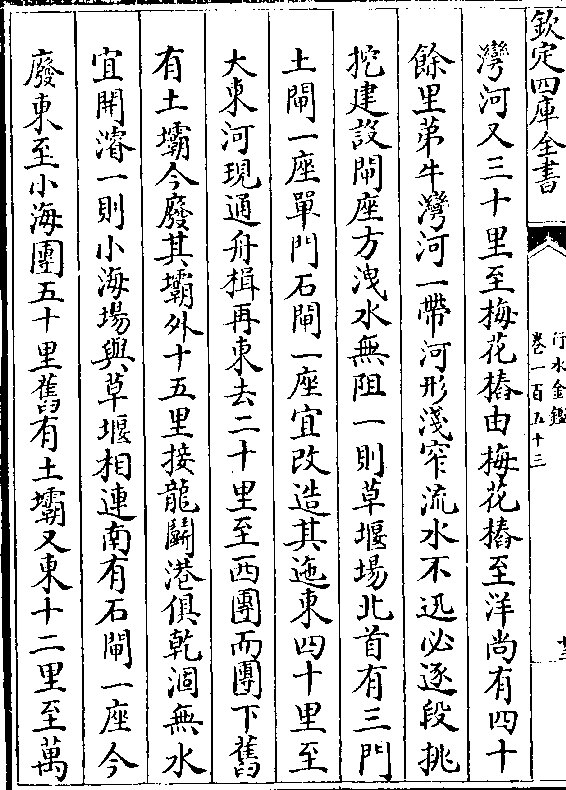 欽定四庫全書
行水金鑑
卷一百五十三
十三
灣河又三十里至梅花樁由梅花樁至洋尚有四十
餘里苐牛灣河一帶河形淺窄流水不迅必逐段挑
挖建設閘座方洩水無阻一則草堰場北首有三門
土閘一座單門石閘一座宜改造其迤東四十里至
大東河現通舟楫再東去二十里至西團而團下舊
有土壩今廢其壩外十五里接龍鬬港俱乾涸無水
宜開濬一則小海場與草堰相連南有石閘一座今
廢東至小海團五十里舊有土壩又東十二里至萬